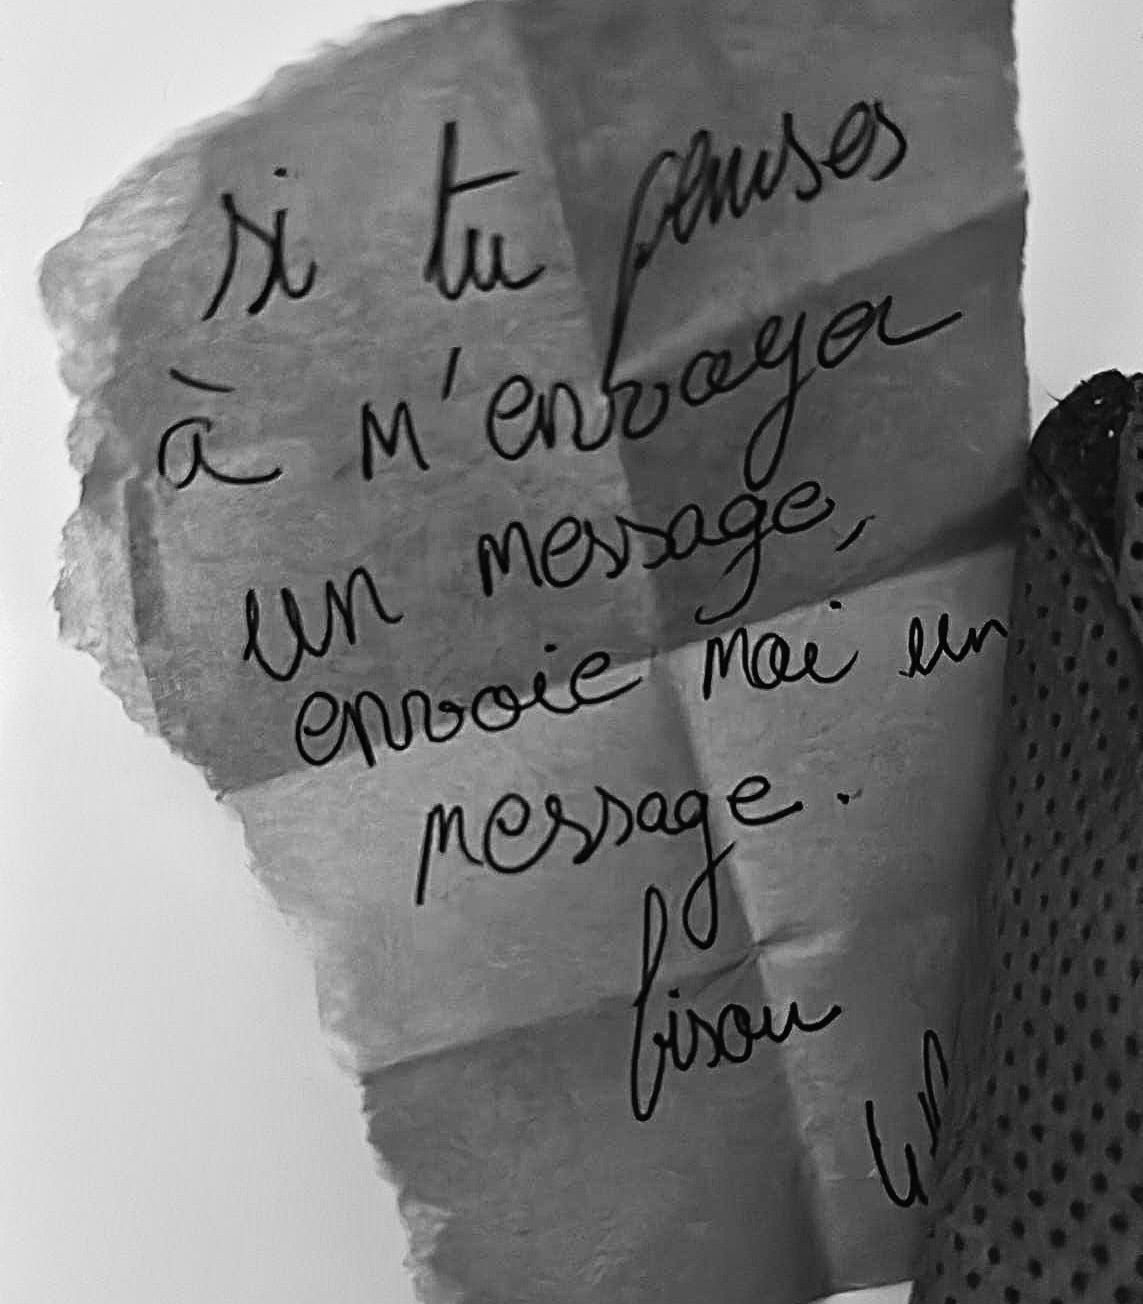 si tu penses
à m'envoyer
un message,
envoie moi un
message.
bisou